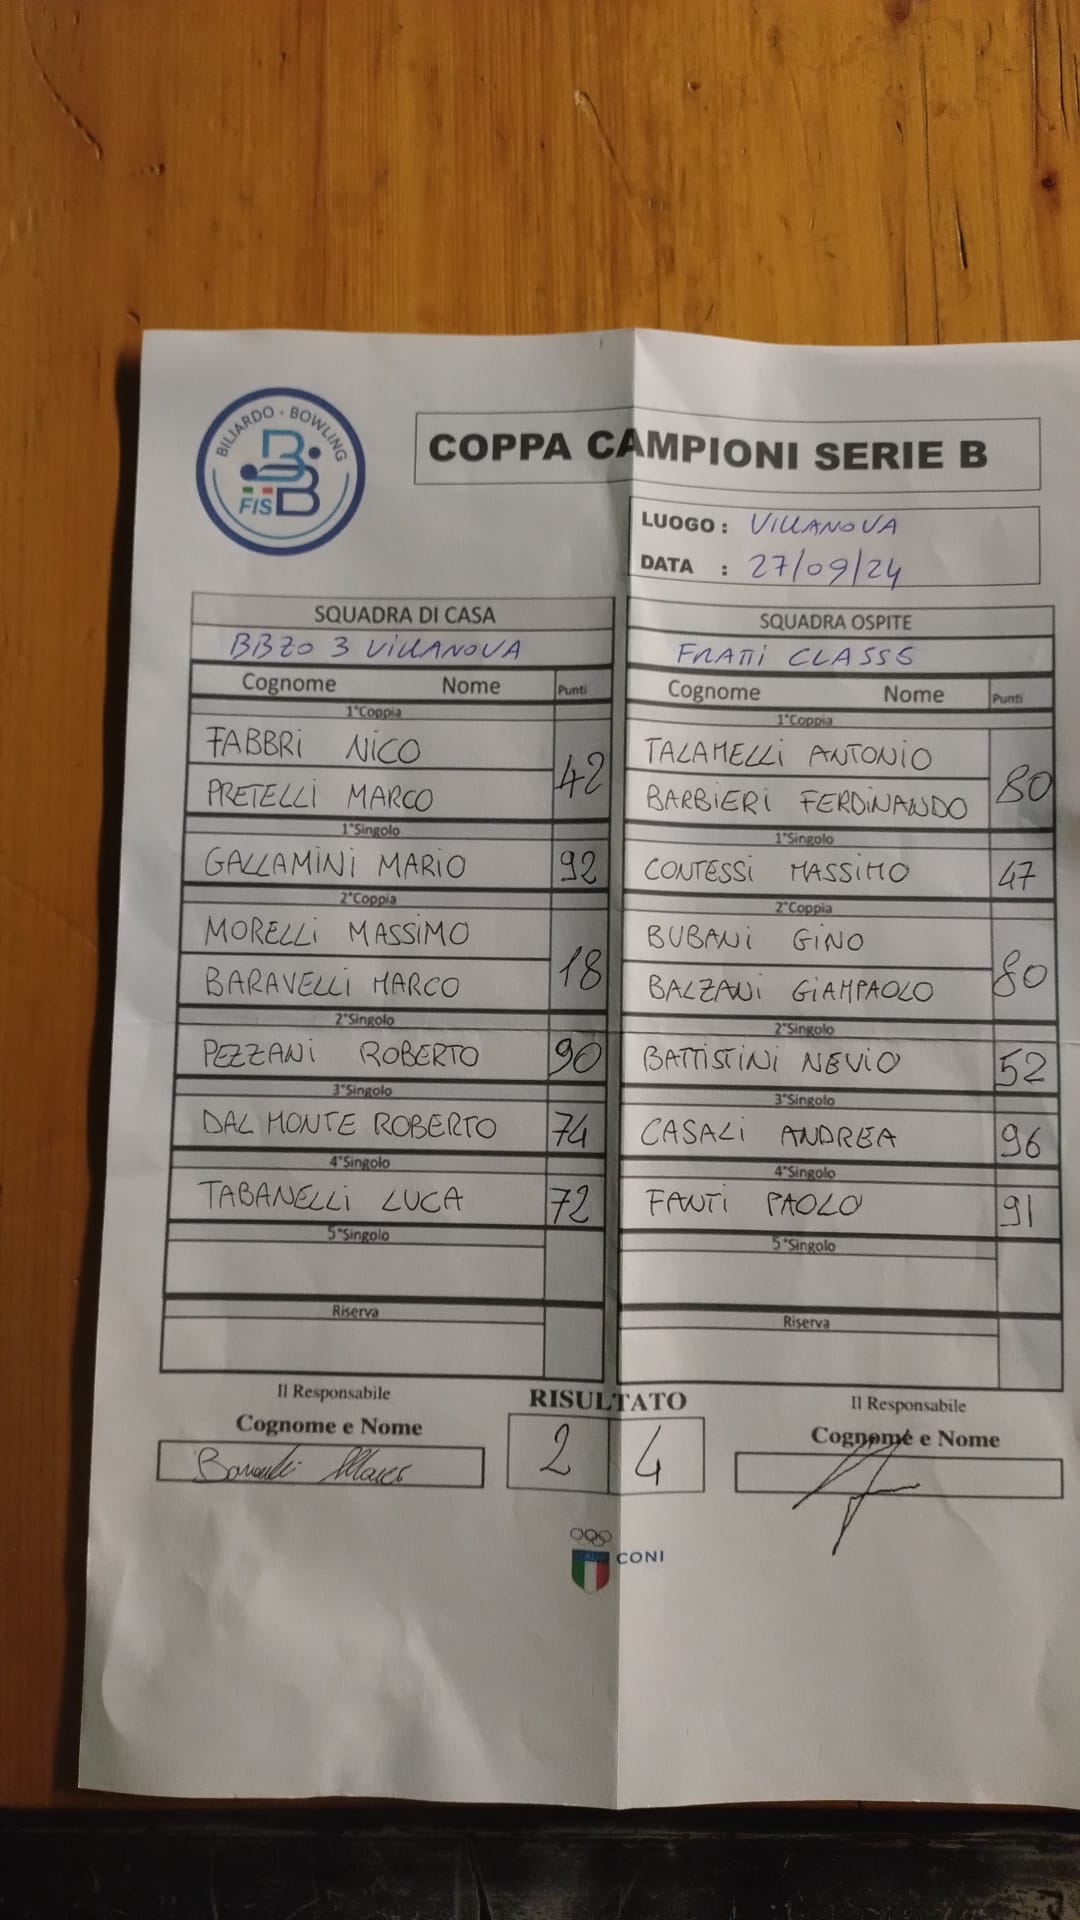 BILIARDO - BOWLING
FISBB
COPPA CAMPIONI SERIE B
LUOGO : VILLANOVA
DATA : 27/09/24
SQUADRA DI CASA
BBZO 3 VILLANOVA
Cognome Nome Punti
1°Coppia
FABBRI NICO
PRETELLI MARCO
42
1°Singolo
GALLAMINI MARIO 92
2°Coppia
MORELLI MASSIMO
BARAVELLI MARCO
18
2°Singolo
PEZZANI ROBERTO 90
3°Singolo
DAL MONTE ROBERTO 74
4°Singolo
TABANELLI LUCA 72
5°Singolo
Riserva
SQUADRA OSPITE
FRATTI CLASSE
Cognome Nome Punti
1°Coppia
TALAMELLI ANTONIO
BARBIERI FERDINANDO
80
1°Singolo
CONTESSI MASSIMO 47
2°Coppia
BUBANI GINO
BALZANI GIAMPAOLO
80
2°Singolo
BATTISTINI NEVIO 52
3°Singolo
CASALI ANDREA 96
4°Singolo
FANTI PAOLO 91
5°Singolo
Riserva
Il Responsabile
Cognome e Nome
RISULTATO
2 4
Il Responsabile
Cognome e Nome
ITALIA
CONI